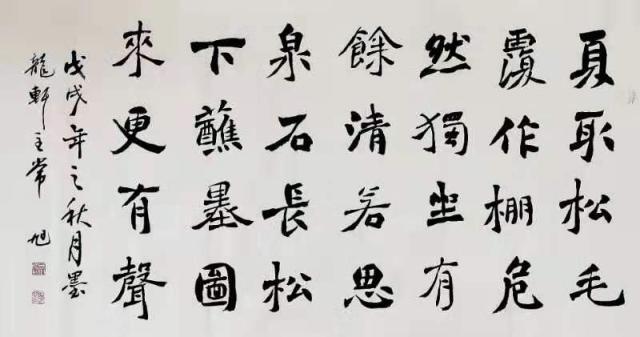 夏取松毛
覆作棚危
然獨坐有
餘清若思
泉石長松
下蘸墨圖
來更有聲
戊戌年之秋月墨
龍軒主常旭